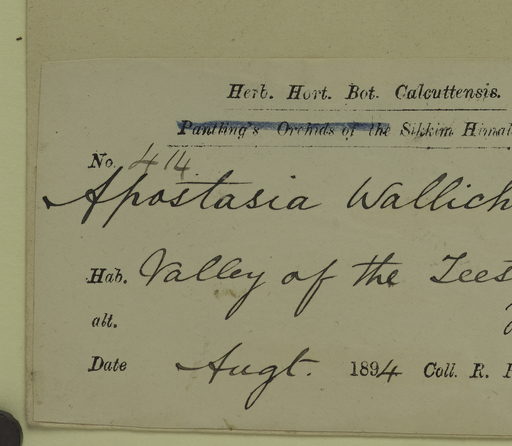 Herb. Hort. Bot. Calcuttensis.
Pantling's Orchids of the Sikkim Himal
No. 414.
Apostasia Wallich
Hab. Valley of the Tees
alt.
Date Augt. 1894 Coll. R. P